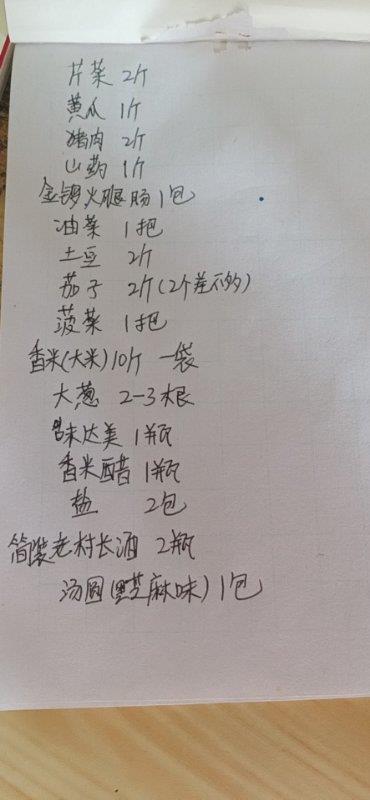 芹菜 2斤
黄瓜 1斤
猪肉 2斤
山药 1斤
金锣火腿肠 1包
油菜 1把
土豆 2斤
茄子 2斤(2个差不多)
菠菜 1把
香米(大米)10斤 一袋
大葱 2-3根
味达美 1瓶
香米醋 1瓶
盐 2包
简装老村长酒 2瓶
汤圆(黑芝麻味) 1包